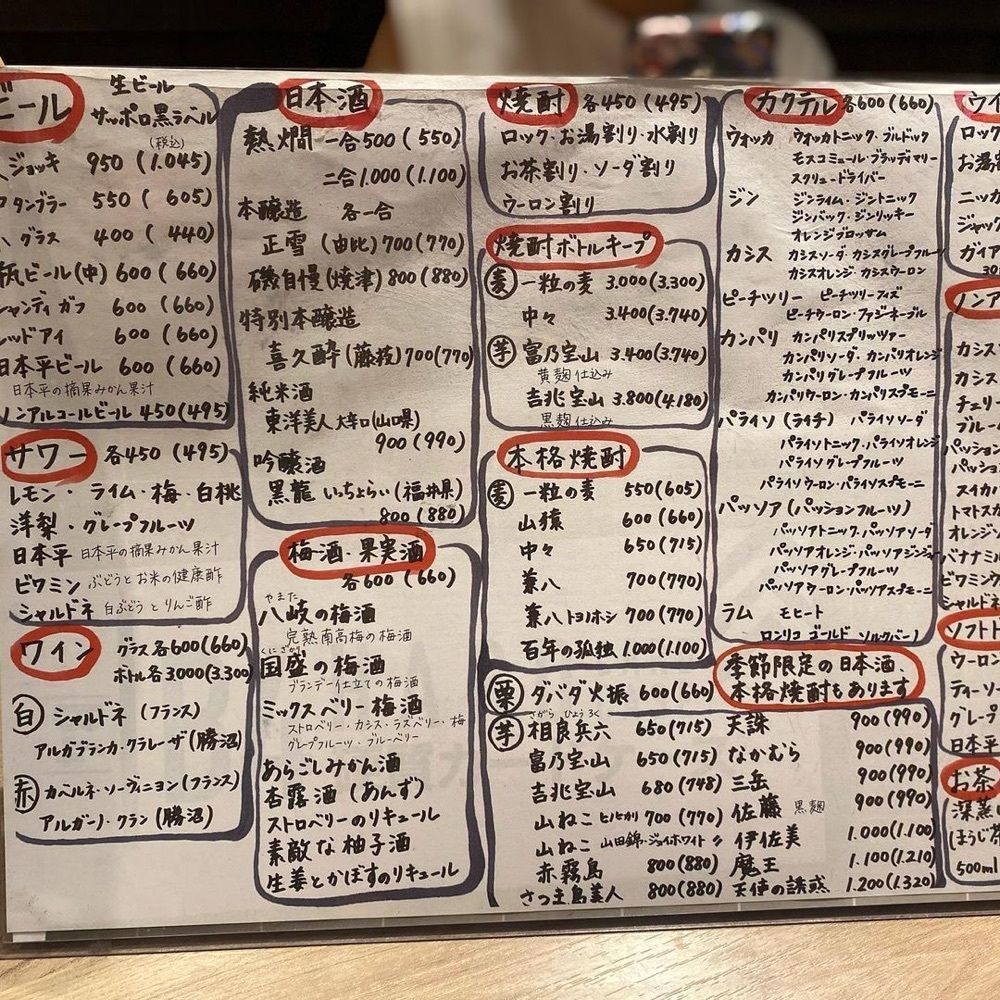 ビール
生ビール
サッポロ黒ラベル
(税込)
ジョッキ 950 (1.045)
タンブラー 550 ( 605)
グラス 400 ( 440)
瓶ビール(中) 600 ( 660)
シャンディ ガフ 600 ( 660)
レッド アイ 600 ( 660)
日本平ビール 600 ( 660)
日本平の摘果みかん果汁
ノンアルコールビール 450(495)
サワー 各450 (495)
レモン・ ライム・梅・白桃
洋梨・グレープフルーツ
日本平 日本平の摘果みかん果汁
ビワミン ぶどうとお米の健康酢
シャルドネ 白ぶどうとりんご酢
ワイン グラス 各600(660)
ボトル 各3000(3.300)
白 シャルドネ (フランス)
アルガブランカ・クラレーザ(勝沼)
赤 カベルネ・ソーヴィニヨン(フランス)
アルガーノ・クラン (勝沼)
日本酒
熱燗 一合500 (550)
二合1.000 (1.100)
本醸造 各一合
正雪 (由比) 700 (770)
磯自慢(焼津) 800 (880)
特別本醸造
喜久酔 (藤枝) 700(770)
純米酒
東洋美人 大辛口(山口県)
900 (990)
吟醸酒
黒龍 いっちょらい (福井県)
800 (880)
梅酒・果実酒
各600 (660)
やまた
八岐の梅酒
完熟南高梅の梅酒
くにざかり
国盛の梅酒
ブランデー仕立ての梅酒
ミックスベリー梅酒
ストロベリー・カシス・ラズベリー・梅
グレープフルーツ・ブルーベリー
あらごしみかん酒
杏露酒 (あんず)
ストロベリーのリキュール
素敵な柚子酒
生姜とかぼすのリキュール
焼酎 各450 (495)
ロック・お湯割り・水割り
お茶割り・ソーダ割り
ウーロン割り
焼酎ボトルキープ
麦 一粒の麦 3.000(3.300)
中々 3.400(3.740)
芋 富乃宝山 3.400(3.740)
黄麹仕込み
吉兆宝山 3.800(4.180)
黒麹仕込み
本格焼酎
麦 一粒の麦 550(605)
山猿 600 (660)
中々 650 (715)
兼八 700 (770)
兼八 トヨノホシ 700 (770)
百年の孤独 1.000 (1.100)
栗 ダバダ火振 600(660)
さがら ひょうろく
芋 相良兵六 650(715)
富乃宝山 650 (715)
吉兆宝山 680 (748)
山ねこ ヒノヒカリ 700 (770)
山ねこ 山田錦・ジョイホワイト 〃
赤霧島 800(880)
さつま島美人 800 (880)
カクテル 各600 (660)
ウォッカ ウォッカトニック・ブルドック
モスコミュール・ブラッディマリー
スクリュードライバー
ジン ジンライム・ジントニック
ジンバック・ジンリッキー
オレンジブロッサム
カシス カシスソーダ・カシスグレープフルーツ
カシスオレンジ・カシスウーロン
ピーチツリー ピーチツリーフィズ
ピーチウーロン・ファジーネーブル
カンパリ カンパリスプリッツァー
カンパリソーダ・カンパリオレンジ
カンパリグレープフルーツ
カンパリウーロン・カンパリスプモーニ
パライソ (ライチ) パライソソーダ
パライソトニック・パライソオレンジ
パライソグレープフルーツ
パライソウーロン・パライソスプモーニ
パッソア (パッションフルーツ)
パッソアトニック・パッソアソーダ
パッソアオレンジ・パッソアジンジャー
パッソアグレープフルーツ
パッソアウーロン・パッソアスプモーニ
ラム モヒート
ロンリコ ゴールド ソルクバーノ
季節限定の日本酒、
本格焼酎もあります
天誅 900 (990)
なかむら 900 (990)
三岳 900 (990)
佐藤 黒麹 900 (990)
伊佐美 1.000 (1.100)
魔王 1.100 (1.210)
天使の誘惑 1.200 (1.320)
ウイ
ロック
お湯
ニッカ
ジャッ
ガイア
ノンア
カシス
カシス
チェリー
ブルー
パッション
パッショ
スイカ
トマト
バナナミル
ビワミン
シャルドネ
ソフト
ウーロン
ティーソー
グレープ
日本平
お茶
深蒸
(ほうじ茶
500ml